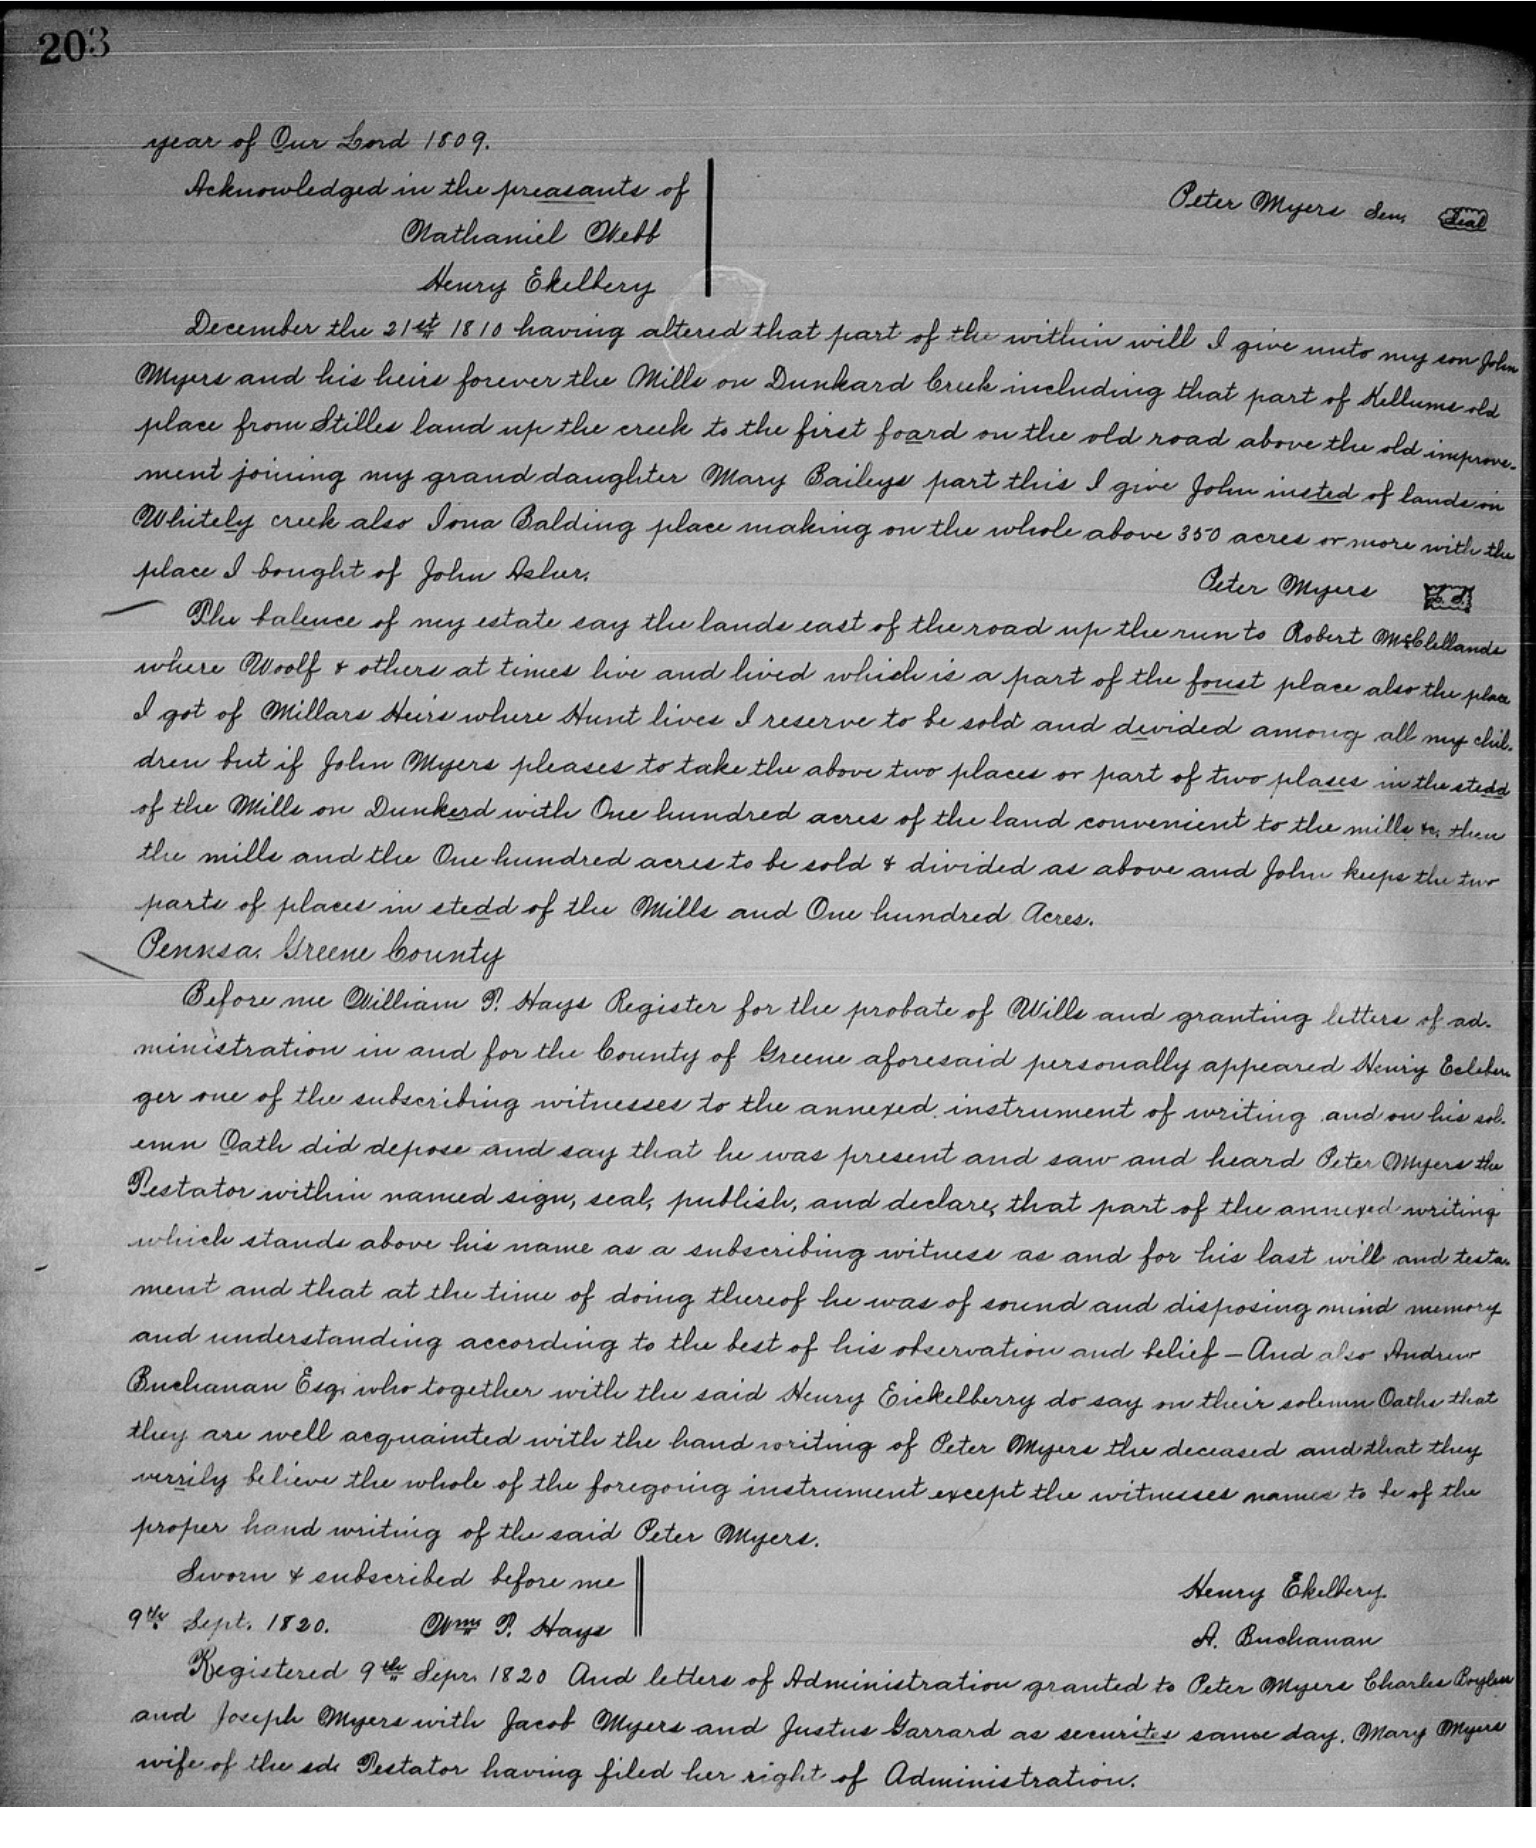 203
year of Our Lord 1809.
Acknowledged in the preasants of
Peter Myers Sen. Seal
Nathaniel Webb
Henry Ekelbery
December the 21st 1810 having altered that part of the within will I give unto my son John
Myers and his heirs forever the Mills on Dunkard Creek including that part of Kellums old
place from Stilles land up the creek to the first foard on the old road above the old improve-
ment joining my grand daughter Mary Baileys part this I give John insted of lands on
Whitely creek also Iona Balding place making on the whole above 350 acres or more with the
place I bought of John Asher.
Peter Myers
The balence of my estate say the lands east of the road up the run to Robert McClellands
where Woolf & others at times live and lived which is a part of the foust place also the place
I got of Millars Heirs where Hunt lives I reserve to be sold and devided among all my chil-
dren but if John Myers pleases to take the above two places or part of two plases in the stedd
of the Mills on Dunkerd with One hundred acres of the land convenient to the mills &c. then
the mills and the One hundred acres to be sold & divided as above and John keeps the two
parts of places in stedd of the Mills and One hundred Acres.
Pennsa. Greene County
Before me William P. Hays Register for the probate of Wills and granting letters of ad-
ministration in and for the County of Greene aforesaid personally appeared Henry Ecleber-
ger one of the subscribing witnesses to the annexed instrument of writing and on his sol-
emn Oath did depose and say that he was present and saw and heard Peter Myers the
Testator within named sign, seal, publish, and declare, that part of the annexed writing
which stands above his name as a subscribing witness as and for his last will and testa-
ment and that at the time of doing thereof he was of sound and disposing mind memory
and understanding according to the best of his observation and belief – And also Andrew
Buchanan Esq. who together with the said Henry Eickelberry do say on their solemn Oaths that
they are well acquainted with the hand writing of Peter Myers the deceased and that they
verrily believe the whole of the foregoing instrument except the witnesses names to be of the
proper hand writing of the said Peter Myers.
Sworn & subscribed before me
Henry Ekelbery.
9th Sept. 1820. Wm P. Hays
A. Buchanan
Registered 9th Sepr. 1820 And letters of Administration granted to Peter Myers Charles
and Joseph Myers with Jacob Myers and Justus Garrard as securites same day. Mary Myers
wife of the sd. Testator having filed her right of Administration.